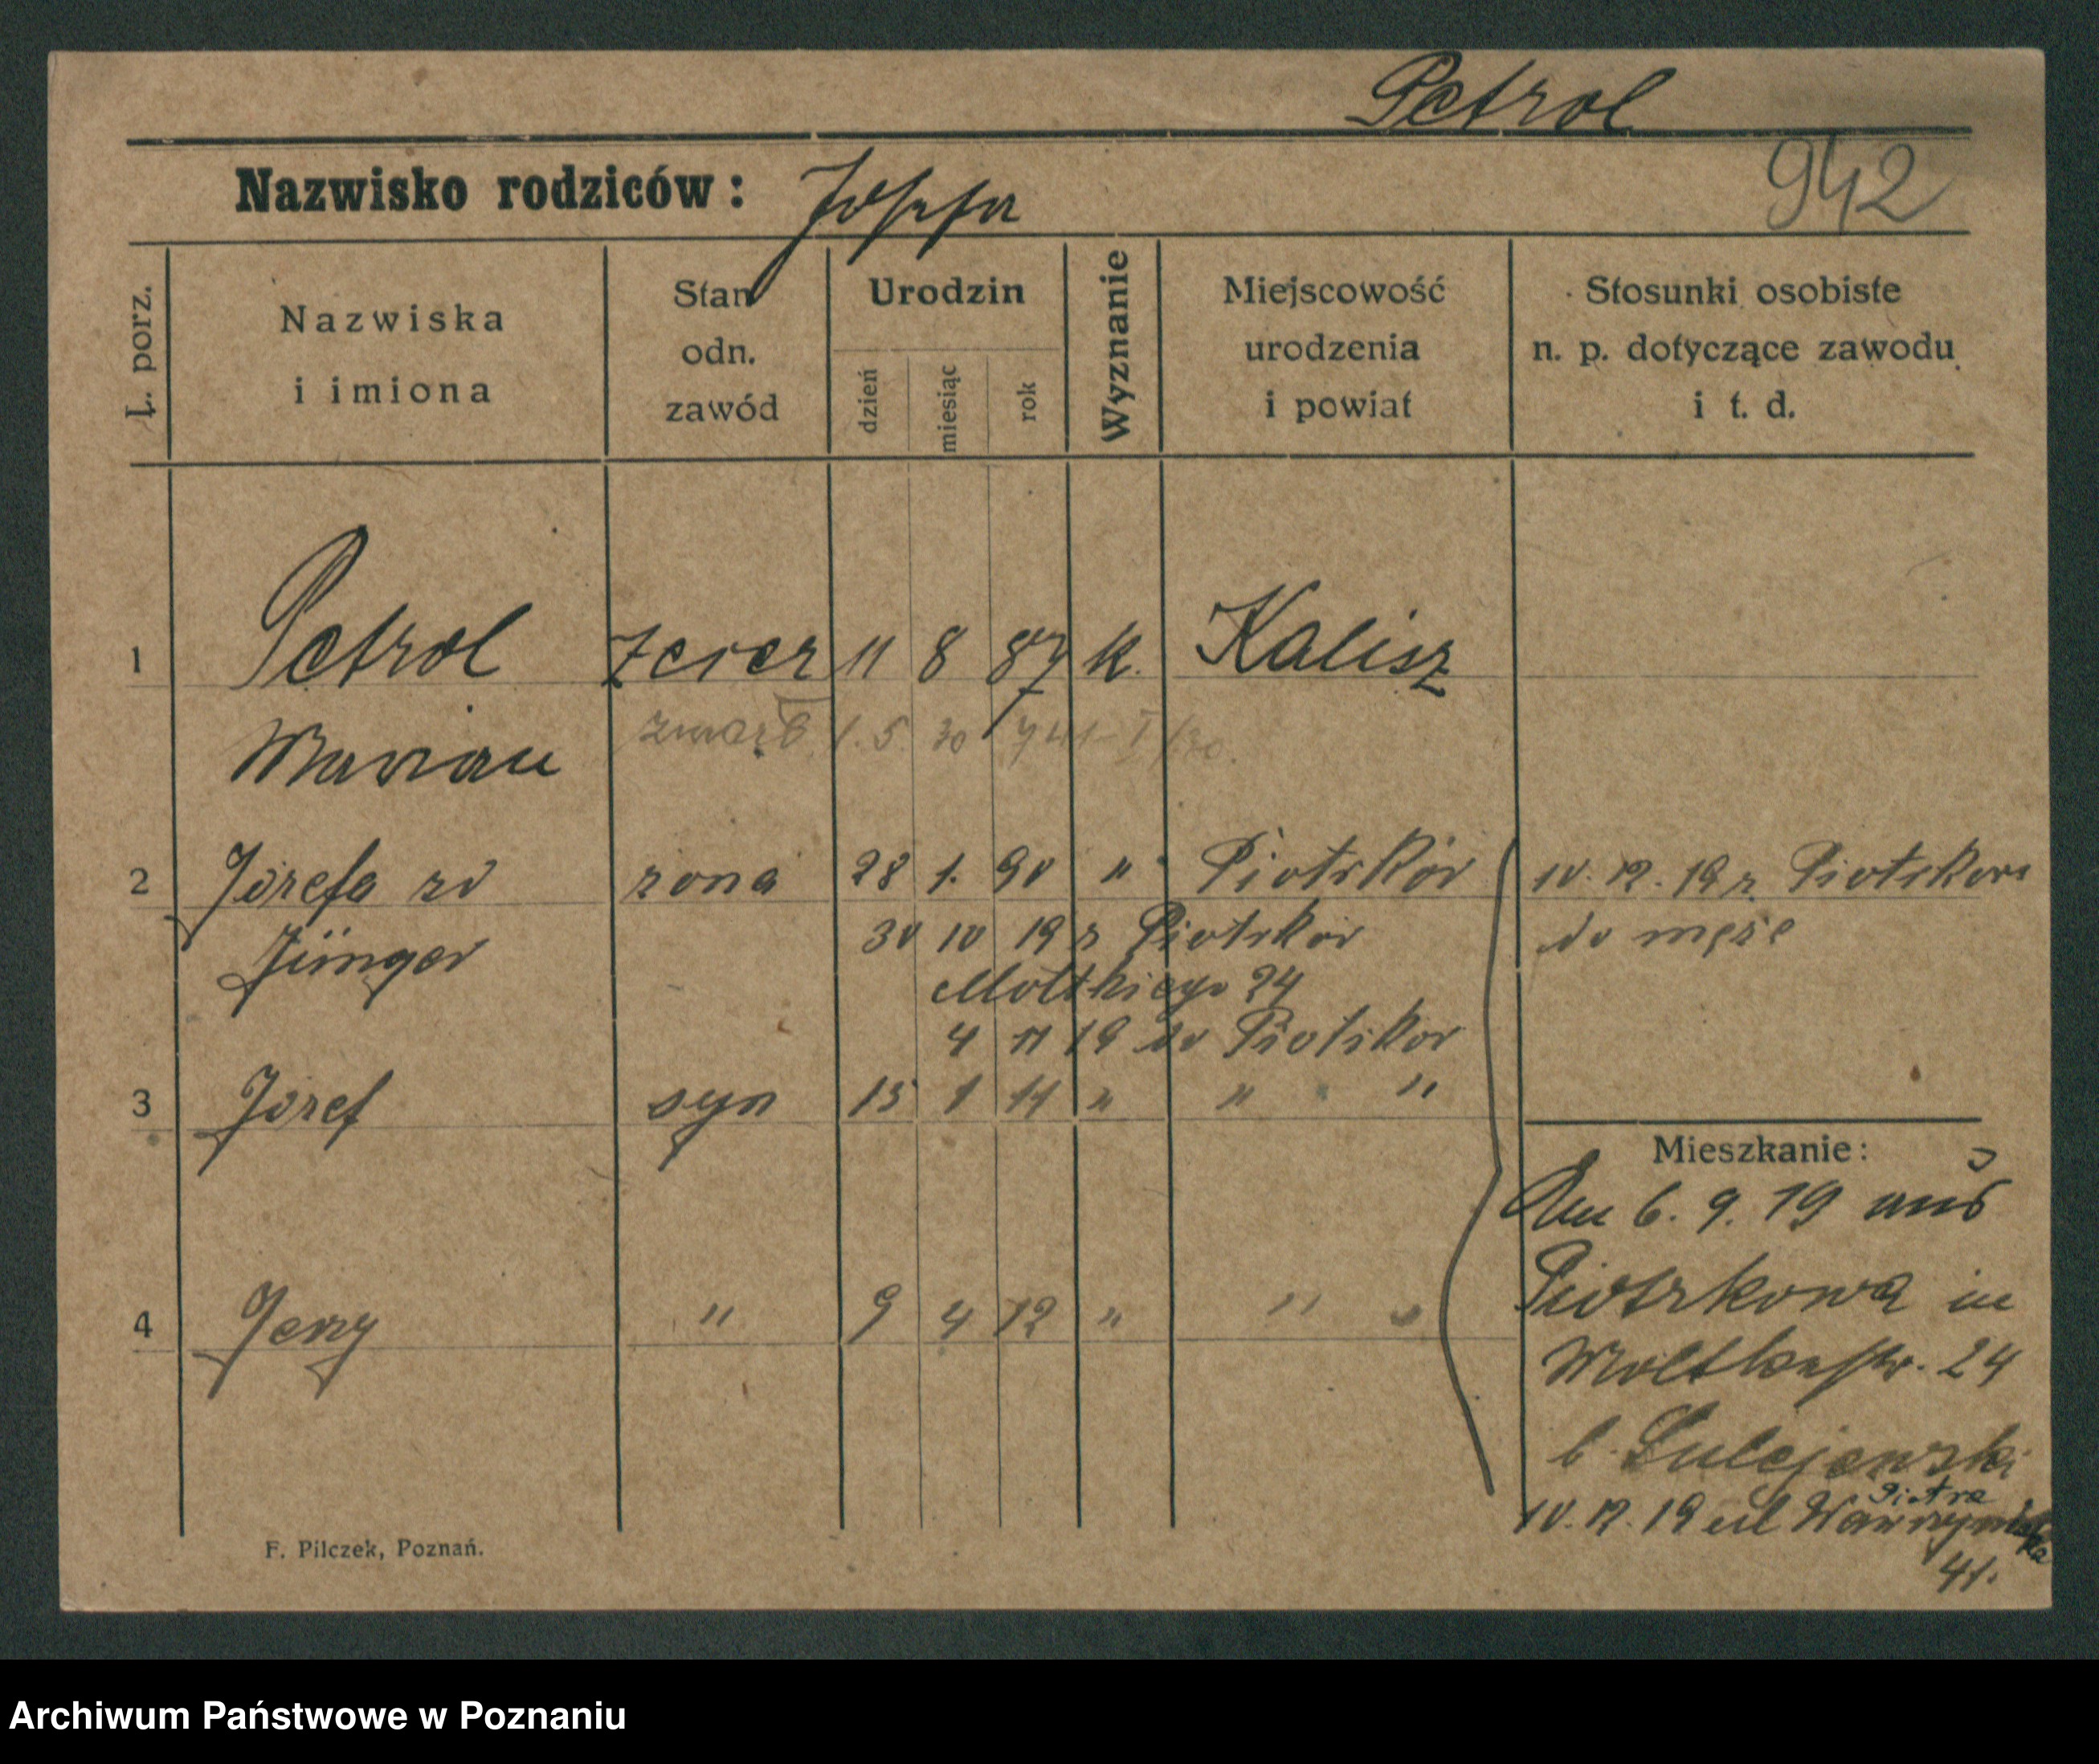 Petrol
Nazwisko rodziców: Józefa
942
L. porz.
Nazwiska i imiona
Stan odn. zawód
Urodzin
dzień miesiąc rok
Wyznanie
Miejscowość urodzenia i powiat
Stosunki osobiste n. p. dotyczące zawodu i t. d.
1 Petrol zecer 11 8 87 k. Kalisz
Marian zmarł 1. 5. 30 941 I/30.
2 Józefa zd żona 28 1. 90 " Piotrków 10. 12. 19 r. Piotrkowa
Jünger 30 10 19 z Piotrków do męża
Moltkiego 24
4 11 19 do Piotrków
3 Józef syn 15 1 11 " " "
Mieszkanie:
Am 6. 9. 19 aus
Piotrkowa in
4 Jerzy " 9 4 12 " " "
Moltkestr. 24
b. Sulejewski
Piotra
10. 12. 19 ul Wawrzyniaka
41.
F. Pilczek, Poznań.
Archiwum Państwowe w Poznaniu